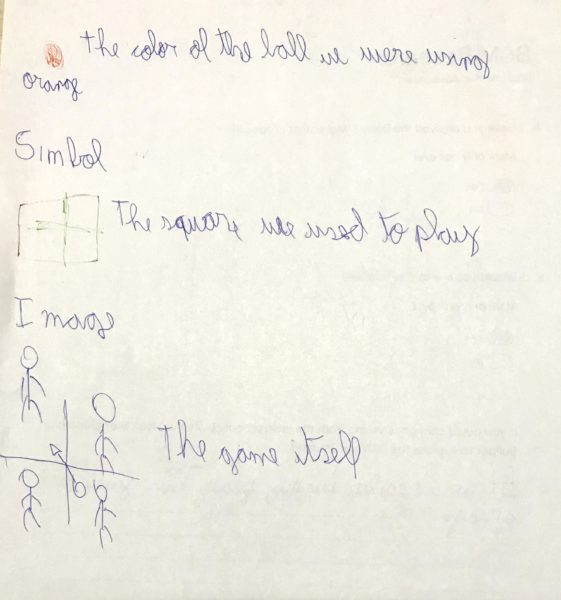 the color of the ball we were using
orange
Simbol
The square we used to play
Image
The game itself